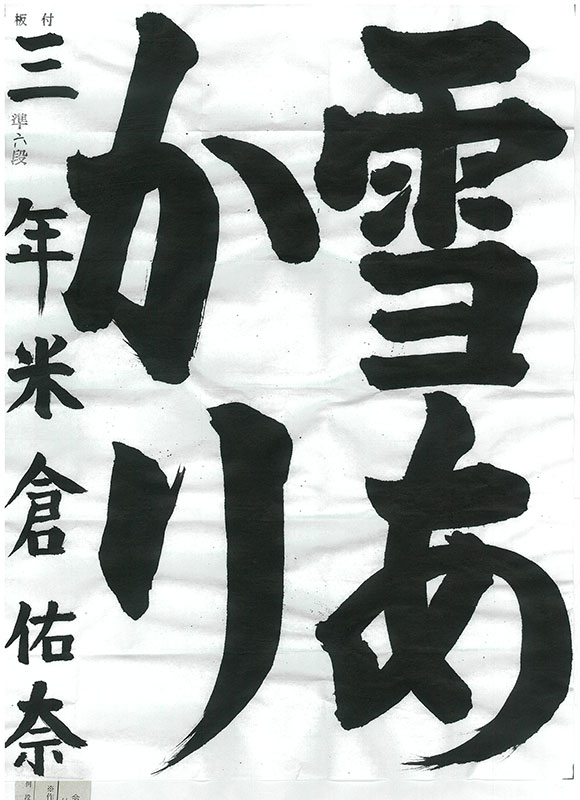 雪あ
かり
板付
三年米倉佑奈
準六段